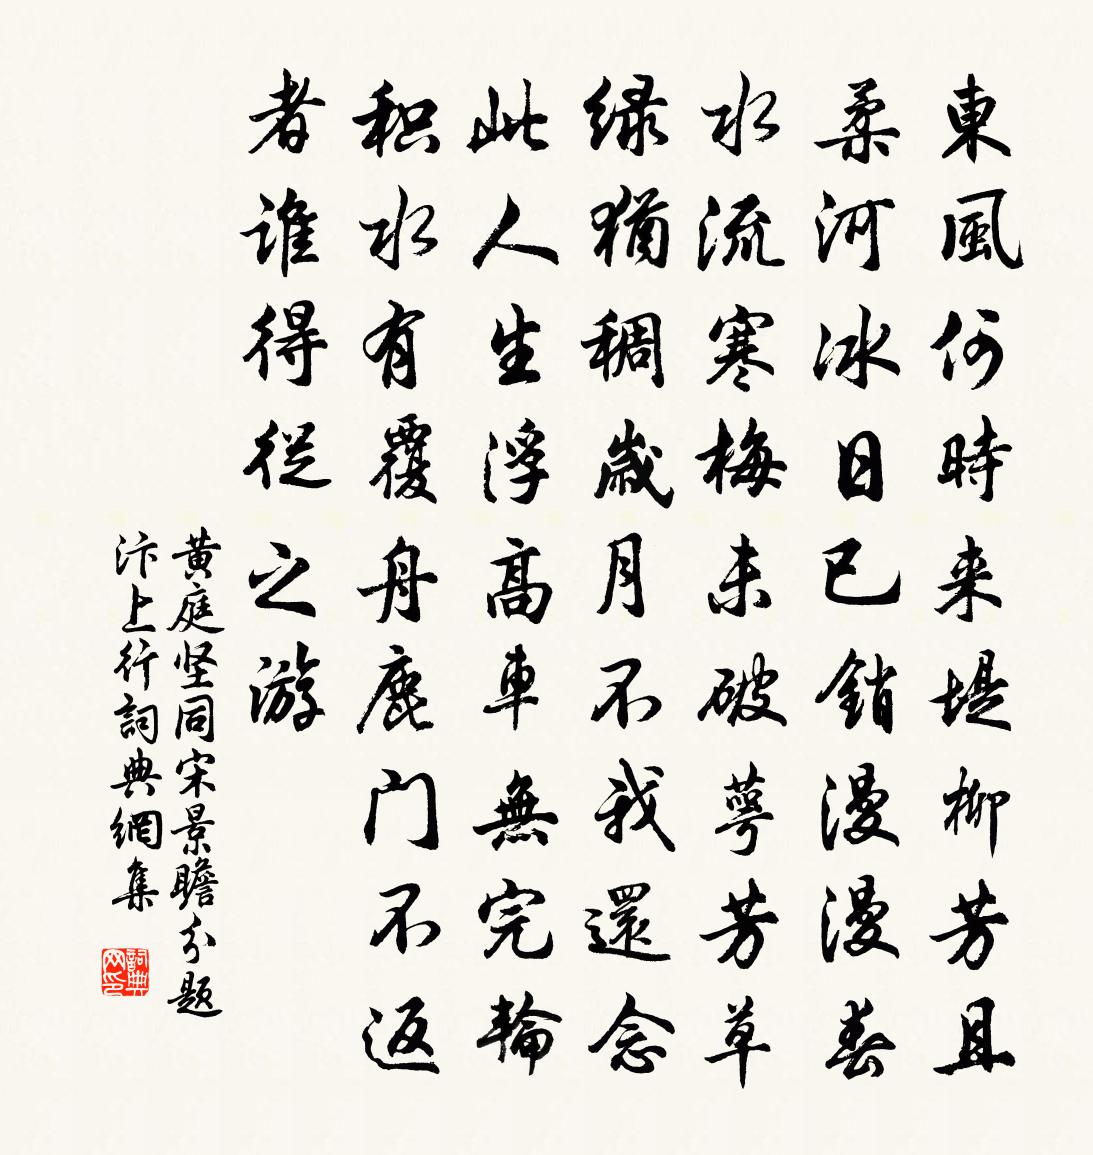 東風何時来堤柳芳且
柔河冰日已銷漫漫春
水流寒梅未破萼芳草
緑猶稠歲月不我還念
此人生浮高車無完輪
积水有覆舟鹿门不返
者谁得從之游
黄庭坚同宋景瞻分題
汴上行詞典網集
詞典网印